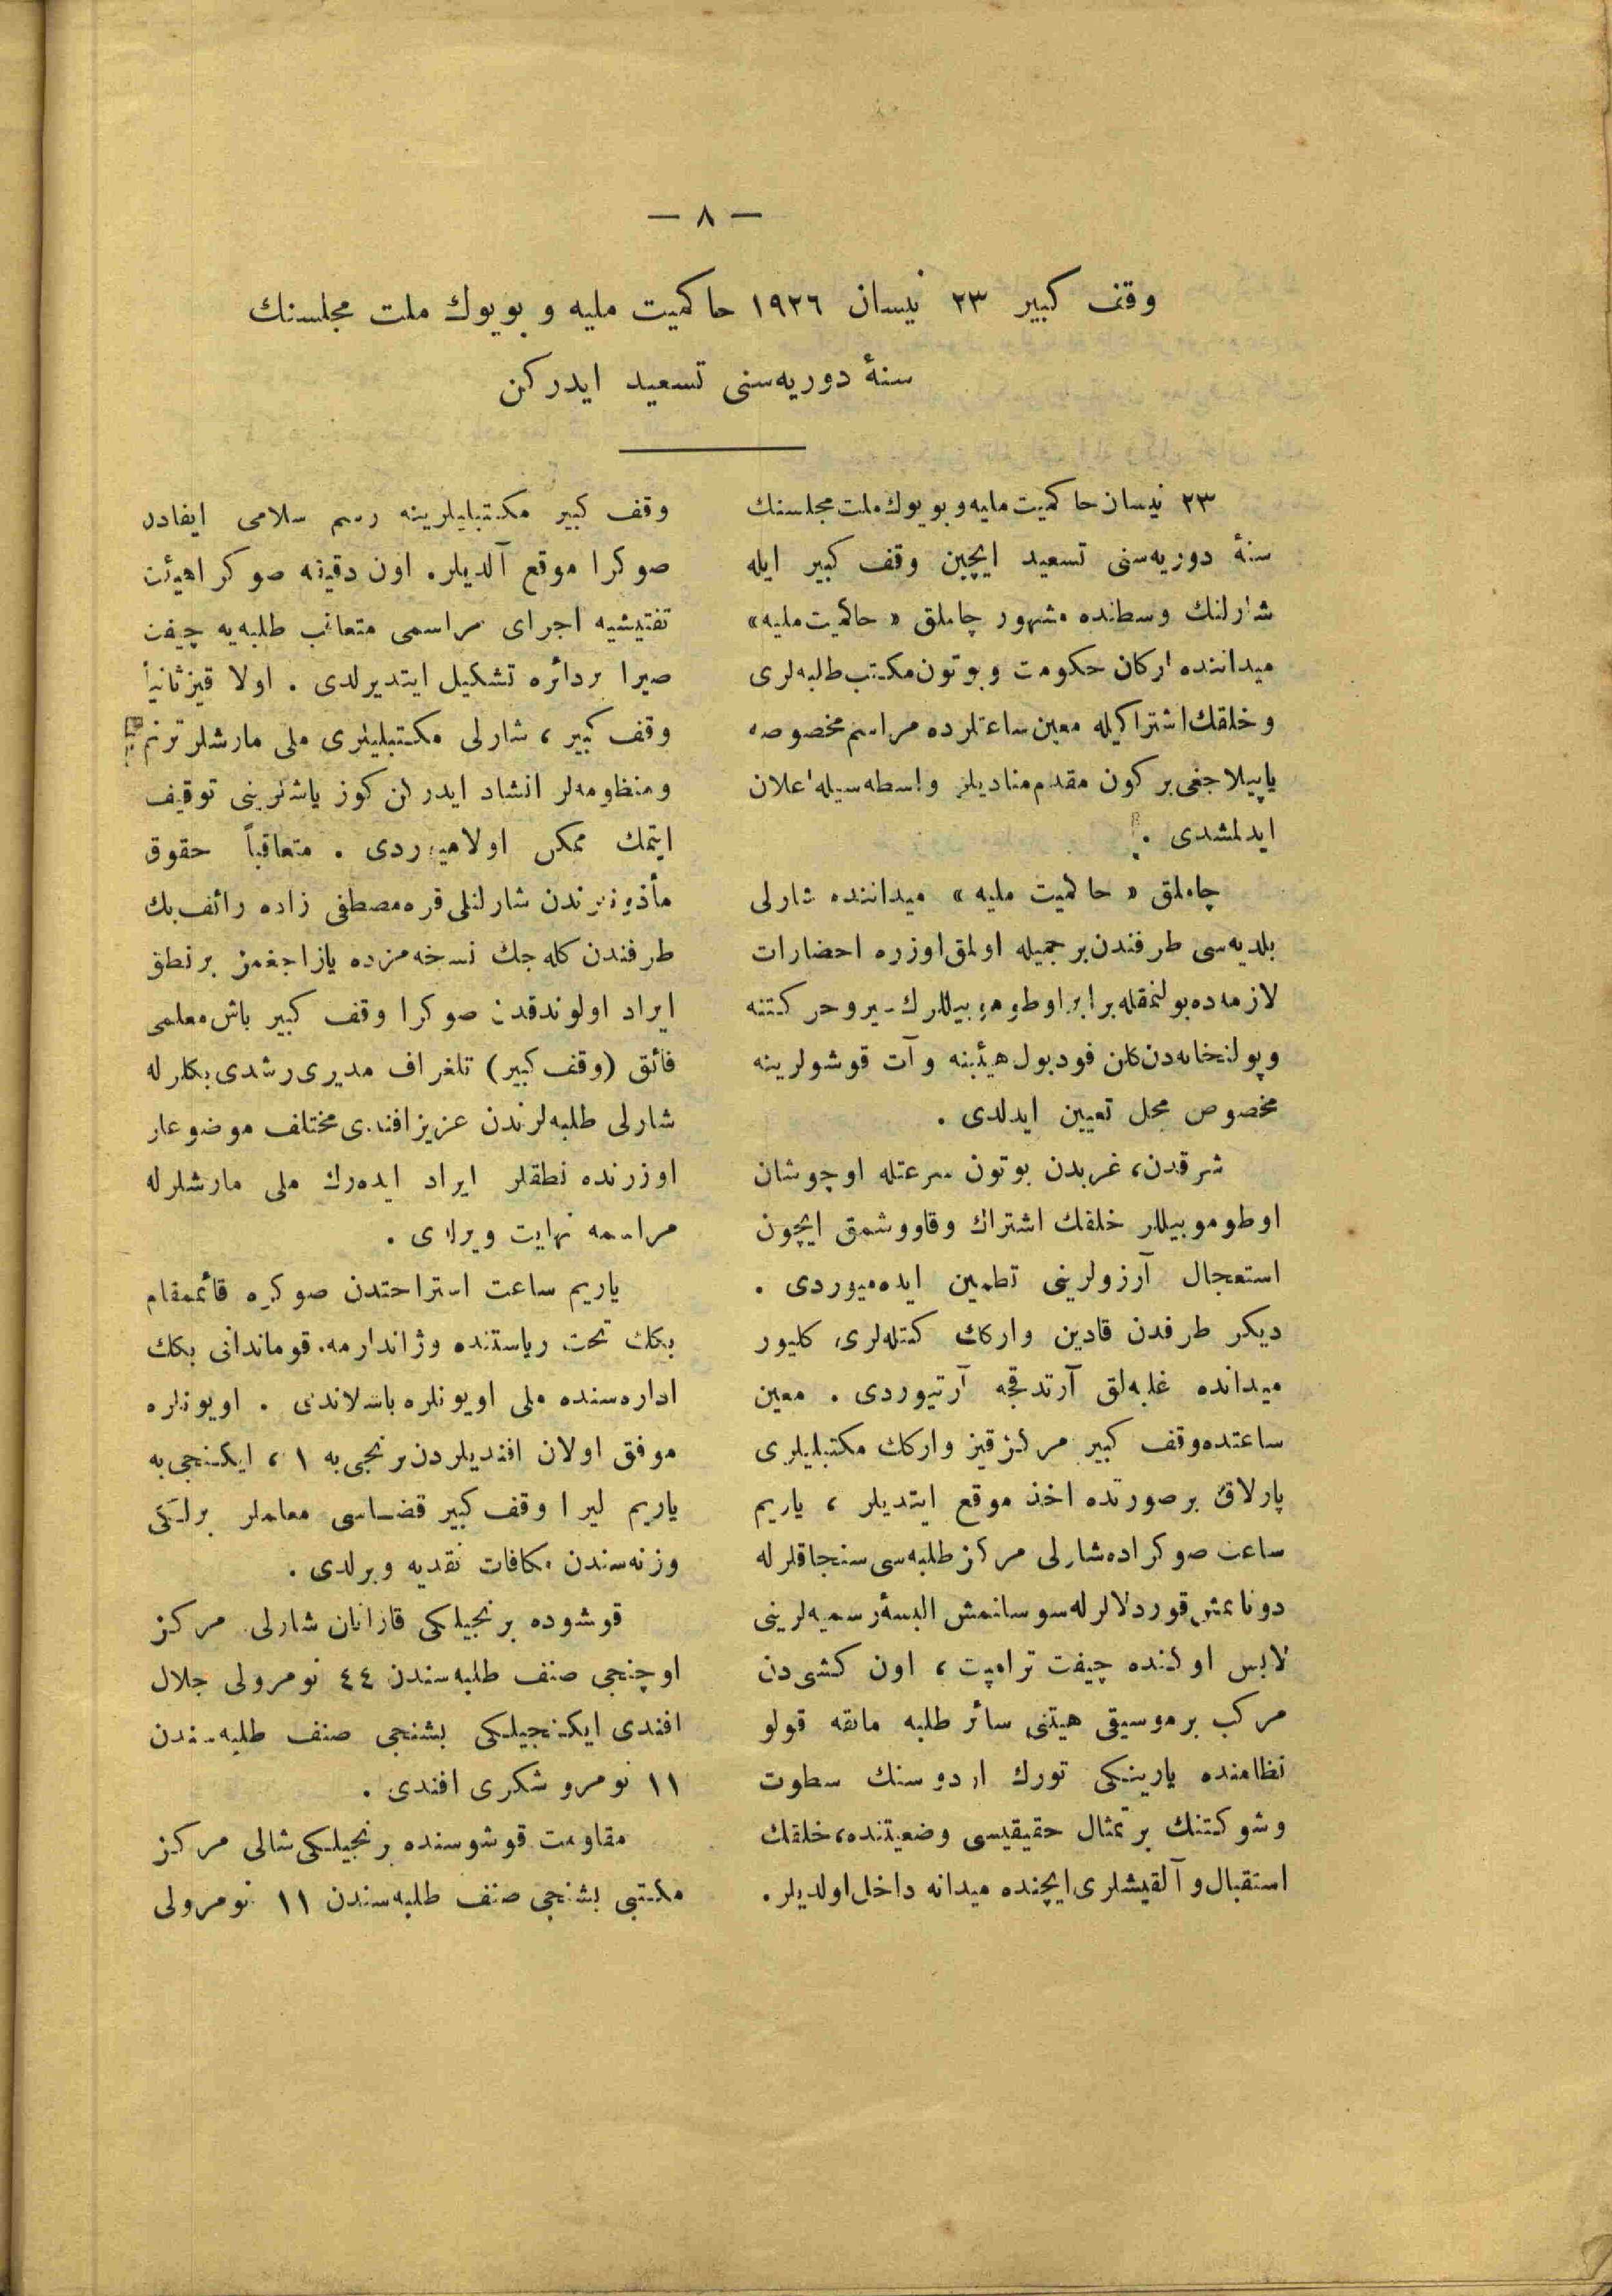 — ٨ —
وقف كبير ٢٣ نيسان ١٩٢٦ حاكميت مليه و بويوك ملت مجلسنك
سنۀ دوريه‌سنى تسعيد ايدركن
٢٣ نيسان حاكميت مليه و بويوك ملت مجلسنك
سنۀ دوريه‌سنى تسعيد ايچين وقف كبير ايله
شارلنك وسطنده مشهور چاملق « حاكميت مليه »
ميداننده اركان حكومت و بوتون مكتب طلبه‌لرى
و خلقك اشتراكيله معين ساعتلرده مراسم مخصوصه
ياپيلاجغى بر كون مقدم مناديلر واسطه‌سيله اعلان
ايدلمشدى .
چاملق « حاكميت مليه » ميداننده شارلى
بلديه‌سى طرفندن بر جميله اولمق اوزره احضارات
لازمه‌ده بولنمقله برابر اوطوموبيللرك سير و حركتنه
و پولتخانه‌دن كلن فودبول هيئتنه و آت قوشولرينه
مخصوص محل تعيين ايدلدى .
شرقدن، غربدن بوتون سرعتله اوچوشان
اوطوموبيللر خلقك اشتراك و قاووشمق ايچون
استعجال آرزولرينى تطمين ايده‌ميوردى .
ديكر طرفدن قادين و اركك كتله‌لرى كليور
ميدانده غلبه‌لق آرتدقجه آرتيوردى . معين
ساعتده وقف كبير مركز قيز و اركك مكتبليلرى
پارلاق بر صورتده اخذ موقع ايتديلر ، ياريم
ساعت صوكراده شارلى مركز طلبه‌سى سنجاقلرله
دوناتمش قوردلالرله سوسلنمش البسۀ رسميه‌لرينى
لابس اوكنده چيفت ترامپت ، اون كشى‌دن
مركب بر موسيقى هيئتى سائر طلبه مانغه قولو
نظامنده يارينكى تورك اردوسنك سطوت
و شوكتنك بر تمثال حقيقيسى وضعيتنده، خلقك
استقبال و آلقيشلرى ايچنده ميدانه داخل اولديلر .
وقف كبير مكتبليلرينه رسم سلامى ايفادن
صوكرا موقع آلديلر. اون دقيقه صوكرا هيئت
تفتيشيه اجراى مراسمى متعاقب طلبه‌يه چيفت
صيرا بر دائره تشكيل ايتديرلدى . اولا قيز ثانياً
وقف كبير ، شارلى مكتبليلرى ملى مارشلر ترنم
و منظومه‌لر انشاد ايدركن كوز ياشلرينى توقيف
ايتمك ممكن اولاميوردى . متعاقباً حقوق
مأذونلرندن شارلنلى قره‌مصطفى زاده رائف بك
طرفندن كله‌جك نسخه‌مزده يازاجغمز بر نطق
ايراد اولوندقدن صوكرا وقف كبير باش معلمى
فائق (وقف كبير) تلغراف مديرى رشدى بكلرله
شارلى طلبه‌لرندن عزيز افندى مختلف موضوعلر
اوزرنده نطقلر ايراد ايده‌رك ملى مارشلرله
مراسمه نهايت ويرلدى .
ياريم ساعت استراحتدن صوكره قائممقام
بكك تحت رياستنده و ژاندارمه قوماندانى بكك
اداره‌سنده ملى اويونلره باشلاندى . اويونلره
موفق اولان افنديلردن برنجى‌يه ١ ، ايكنجى‌يه
ياريم ليرا وقف كبير قضاسى معلملر برلكى
وزنه‌سندن مكافات نقديه ويرلدى .
قوشوده برنجيلكى قازانان شارلى مركز
اوچنجى صنف طلبه‌سندن ٤٤ نومرولى جلال
افندى ايكنجيلكى بشنجى صنف طلبه‌سندن
١١ نومرو شكرى افندى .
مقاومت قوشوسنده برنجيلكى شالى مركز
مكتبى بشنجى صنف طلبه‌سندن ١١ نومرولى